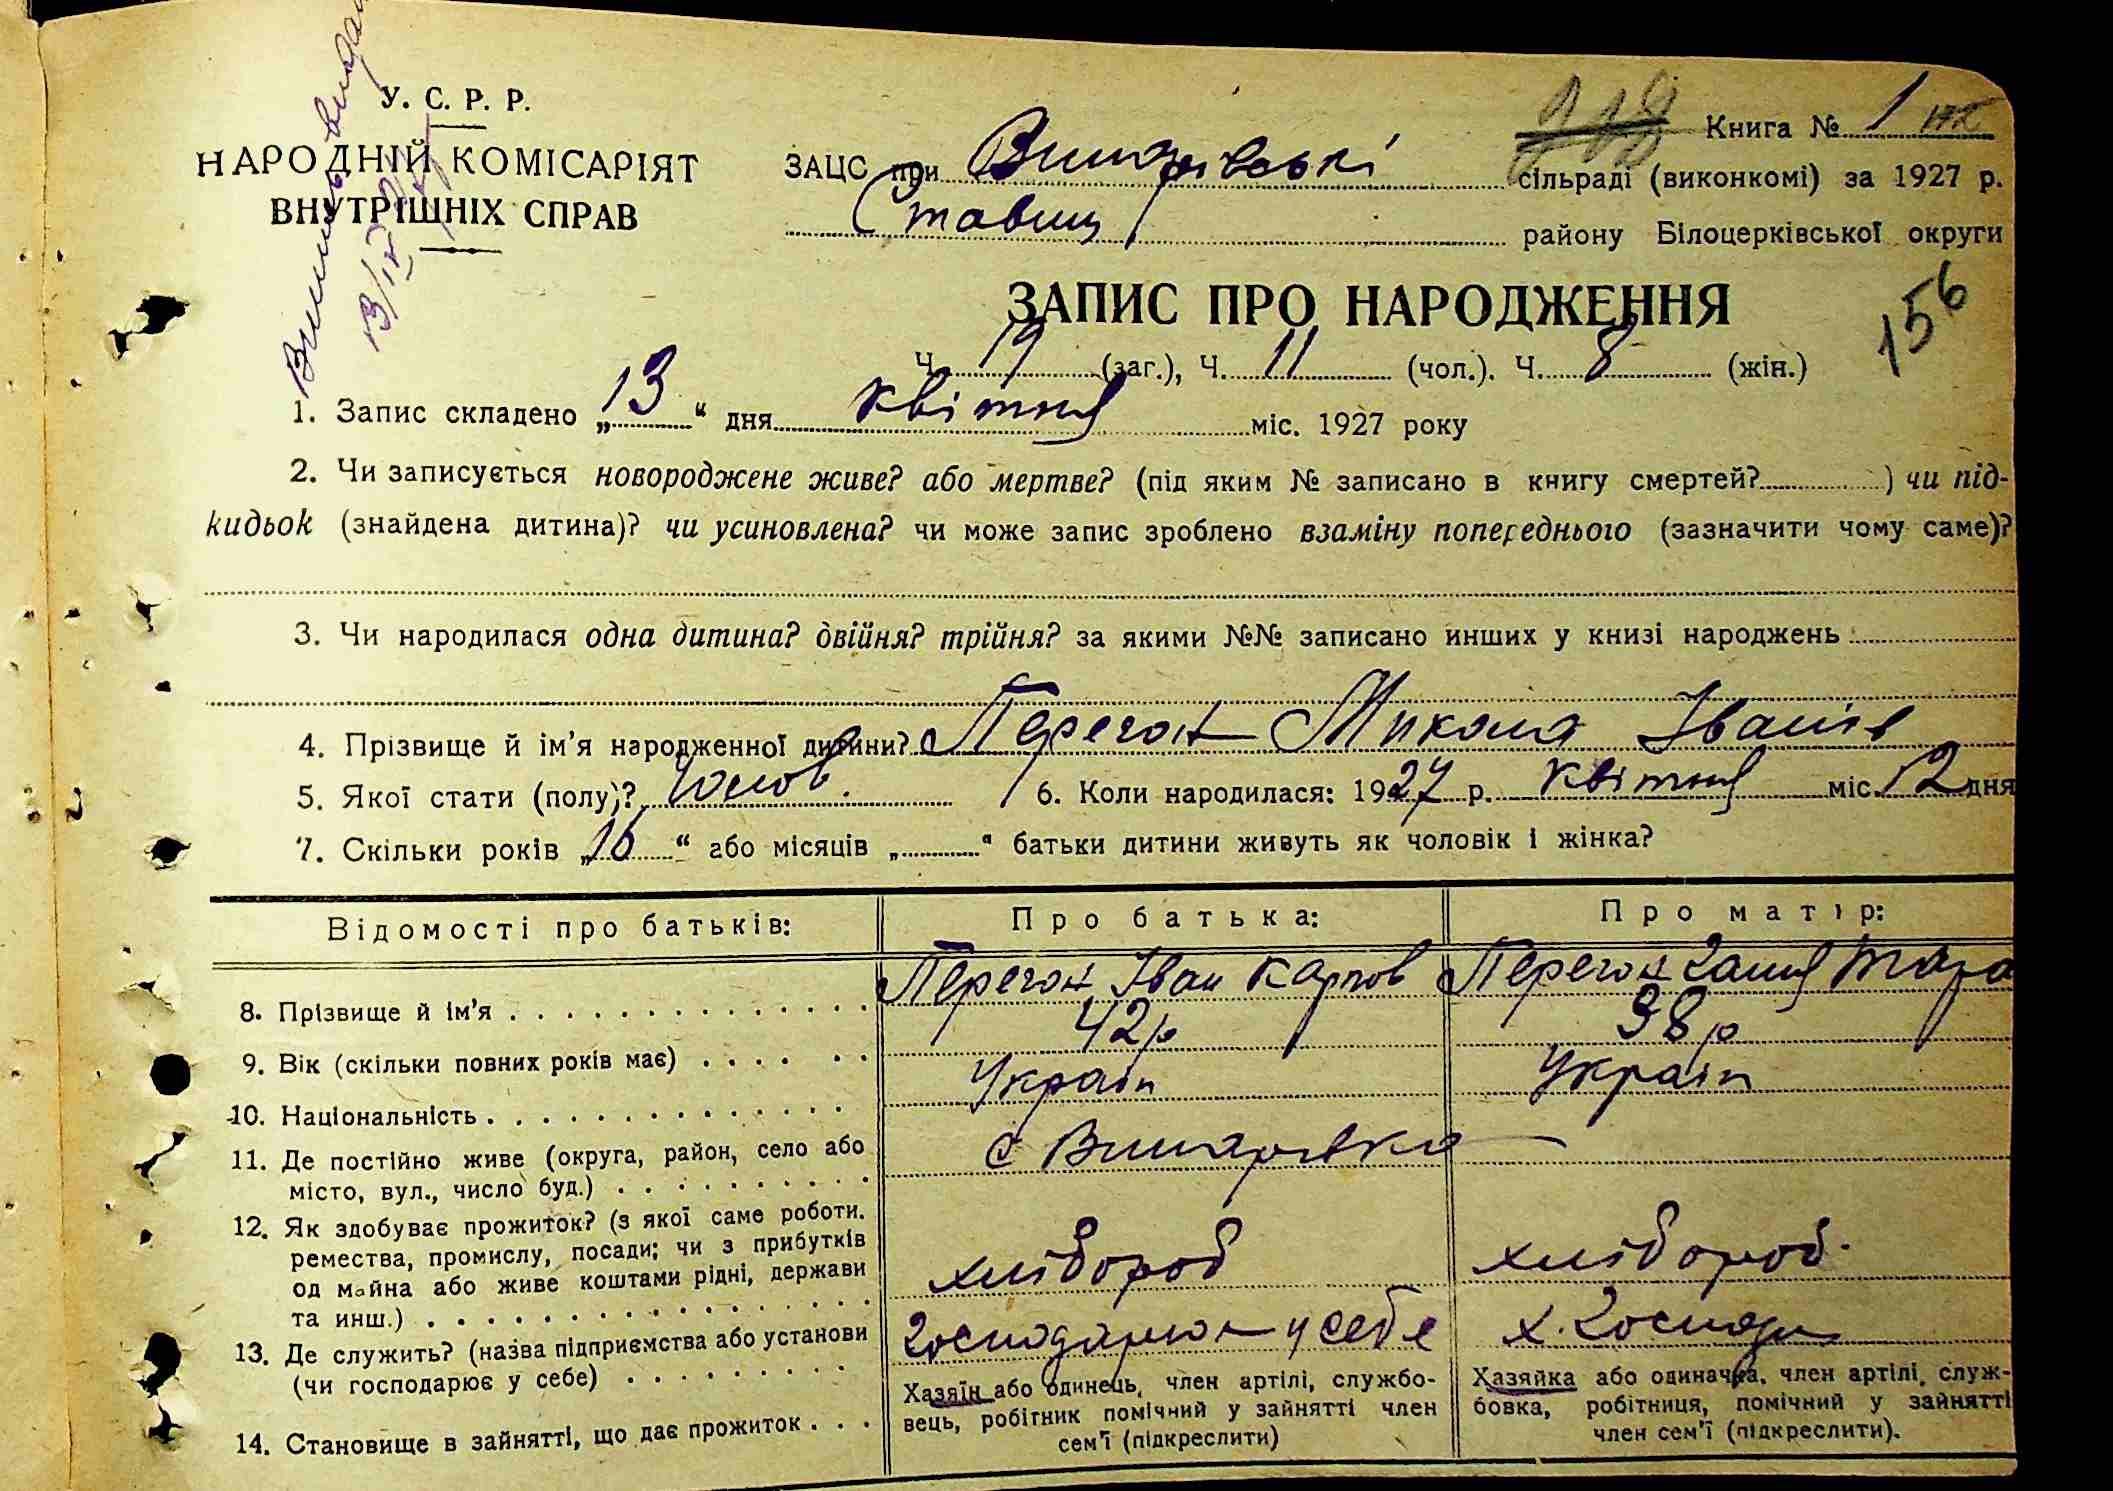 У. С. Р. Р.
НАРОДНІЙ КОМІСАРІЯТ
ВНУТРІШНІХ СПРАВ
Книга № 1
ЗАЦС при сільраді (виконкомі) за 1927 р.
Ставищ району Білоцерківської округи
ЗАПИС ПРО НАРОДЖЕННЯ
156
Ч. 19 (заг.), Ч. 11 (чол.). Ч. 8 (жін.)
1. Запис складено „13“ дня квітня міс. 1927 року
2. Чи записується новороджене живе? або мертве? (під яким № записано в книгу смертей? ) чи під-
кидьок (знайдена дитина)? чи усиновлена? чи може запис зроблено взаміну попереднього (зазначити чому саме)?
3. Чи народилася одна дитина? двійня? трійня? за якими №№ записано инших у книзі народжень
4. Прізвище й ім'я народженної дитини? Перегон Микола Іванів
5. Якої стати (полу)? Чолов. 6. Коли народилася: 1927 р. квітня міс. 12 дня
7. Скільки років „16“ або місяців „ “ батьки дитини живуть як чоловік і жінка?
Відомості про батьків: Про батька: Про матір:
8. Прізвище й ім'я Перегон Іван Карпов Перегон Ганя
9. Вік (скільки повних років має) 42р 38р
10. Національність Україн Україн
11. Де постійно живе (округа, район, село або
місто, вул., число буд.) с
12. Як здобуває прожиток? (з якої саме роботи.
ремества, промислу, посади; чи з прибутків
од майна або живе коштами рідні, держави
та инш.) хлібороб хлібороб.
13. Де служить? (назва підприємства або установи
(чи господарює у себе) у себе
14. Становище в зайнятті, що дає прожиток
Хазяїн або одинець, член артілі, службо-
вець, робітник помічний у зайнятті член
сем'ї (підкреслити)
Хазяйка або одиначка, член артілі, служ-
бовка, робітниця, помічний у зайнятті
член сем'ї (підкреслити).